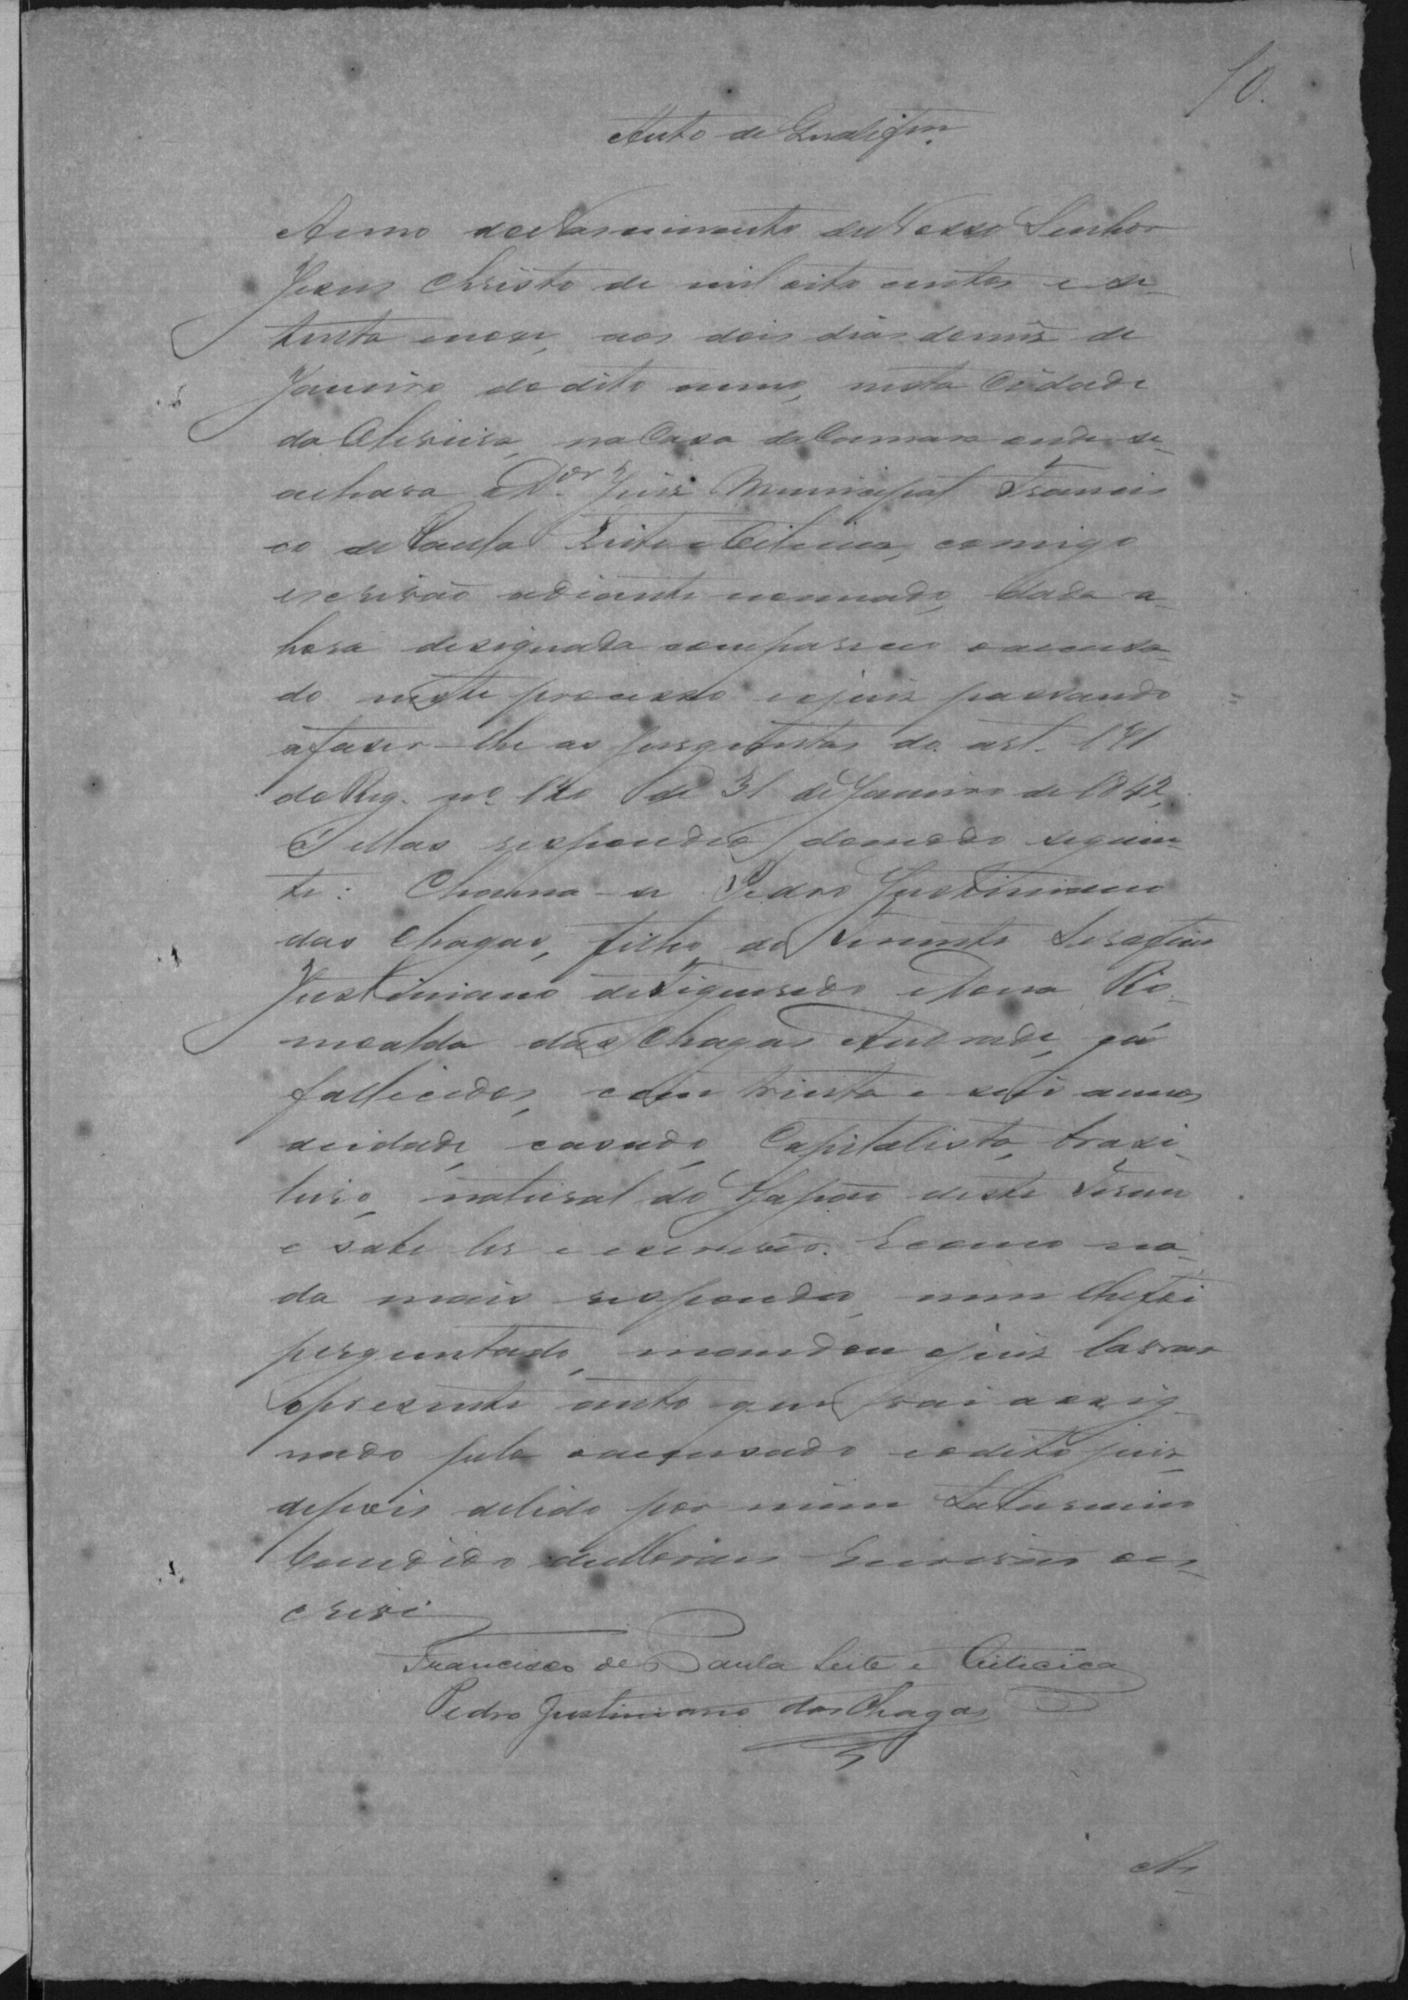 10.
Auto de Qualifm.
Anno do Nascimento de Nosso Senhor
Jesus Christo de mil oito centos e se-
tenta e nove, aos dois dias do mes de
Janeiro do dito anno, nesta Cidade
da Oliveira, na Casa da Camara onde se-
achava o Dor. Juiz Municipal Francis
co de Paula Leite e Oiticica, comigo
escrivão adiante nomeado, dada a-
hora designada compareceo o accusa-
do neste processo e o juiz passando
a faser-lhe as perguntas do art. 171
do Reg. nº 120 de 31 de Janeiro de 1842,
a ellas respondeo do modo seguin-
te: Chama-se Pedro Justiniano
das Chagas, filho do Tenente Serafim
Justiniano de Figueredo e Dona Ro-
moalda das Chagas Andrade, já
fallecidos, com trinta e sete annos
de idade, casado, Capitalista, brazi-
leiro, natural do Japão deste Termo
e sabe ler e escrever. E como na-
da mais respondeo, nem lhe foi
perguntado, mandou o juiz lavrar
o presente auto que vai assig-
nado pelo o accusado e o dito juiz,
depois de lido por mim Saturnino
Candido de Moraes Escrivão o es-
crevi
Francisco de Paula Leite e Oiticica
Pedro Justiniano das Chagas